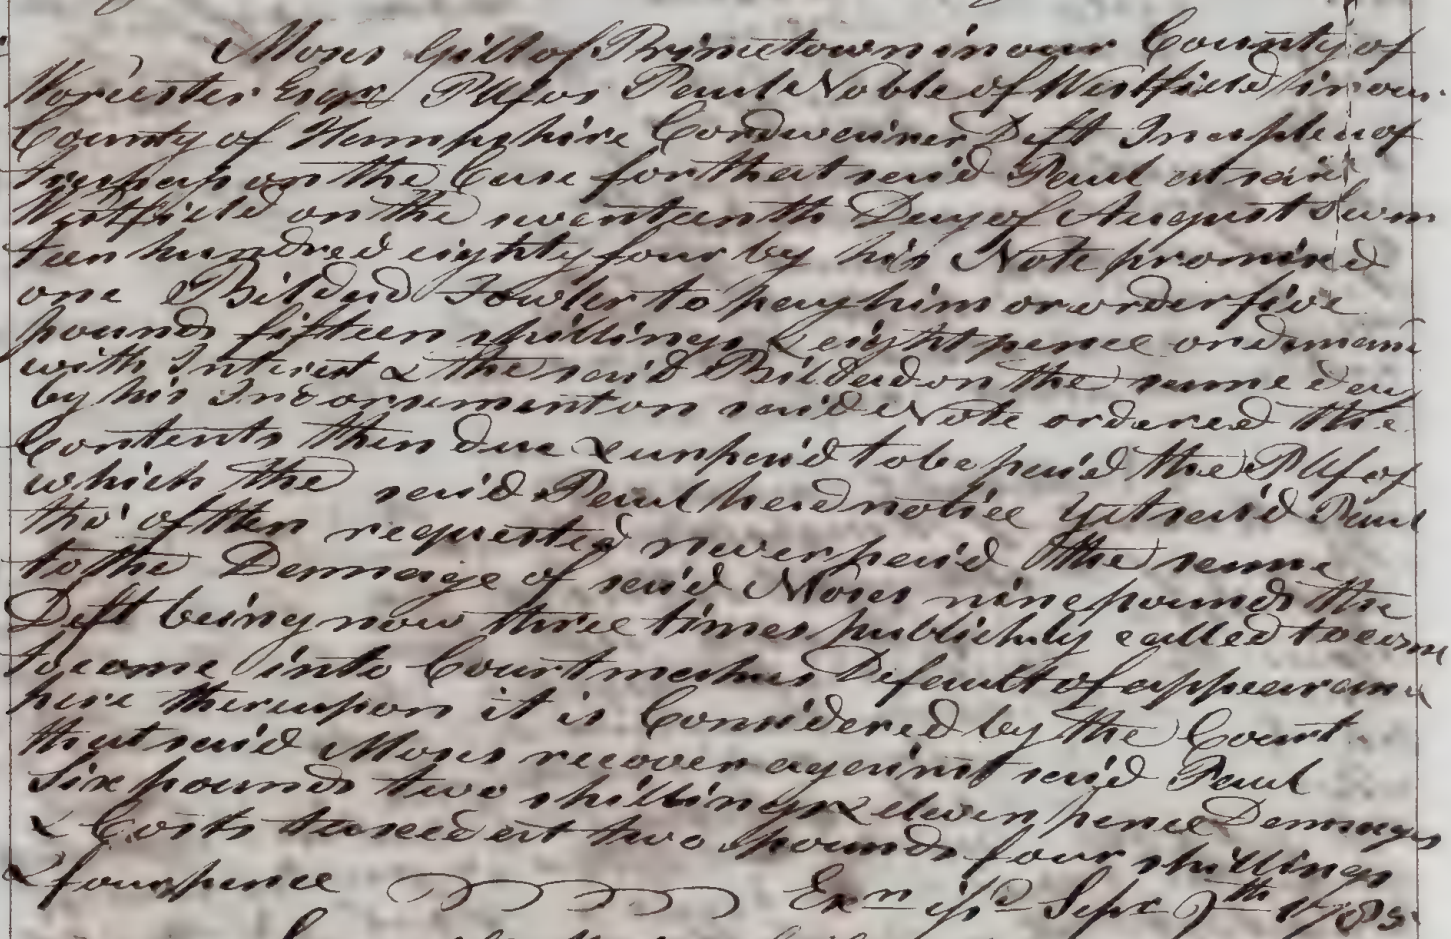 Moses Gill of Princetown in our County of
Worcester Esqr Pltf vs Paul Noble of Westfield in our
County of Hampshire Cordwainer Deft In a plea of
trespass on the Case for that said Paul at said
Westfield on the seventeenth Day of August Seven
teen hundred eighty four by his Note promised
one Bildad Fowler to pay him or order five
pounds fifteen shillings & eight pence on demand
with Interest & the said Bildad on the same day
by his Indorsement on said Note ordered the
Contents then due & unpaid to be paid the Pltf of
which the said Paul had notice Yet said Paul
tho' often requested never paid the same
to the Dammage of said Moses nine pounds the
Deft being now three times publickly called to come
to come into Court makes Default of appearance
here thereupon it is Considered by the Court
that said Moses recover against said Paul
Six pounds two shillings & eleven pence Dammages
& Costs taxed at two pounds four shillings
& four pence Exn iss'd Sepr 7th 1785